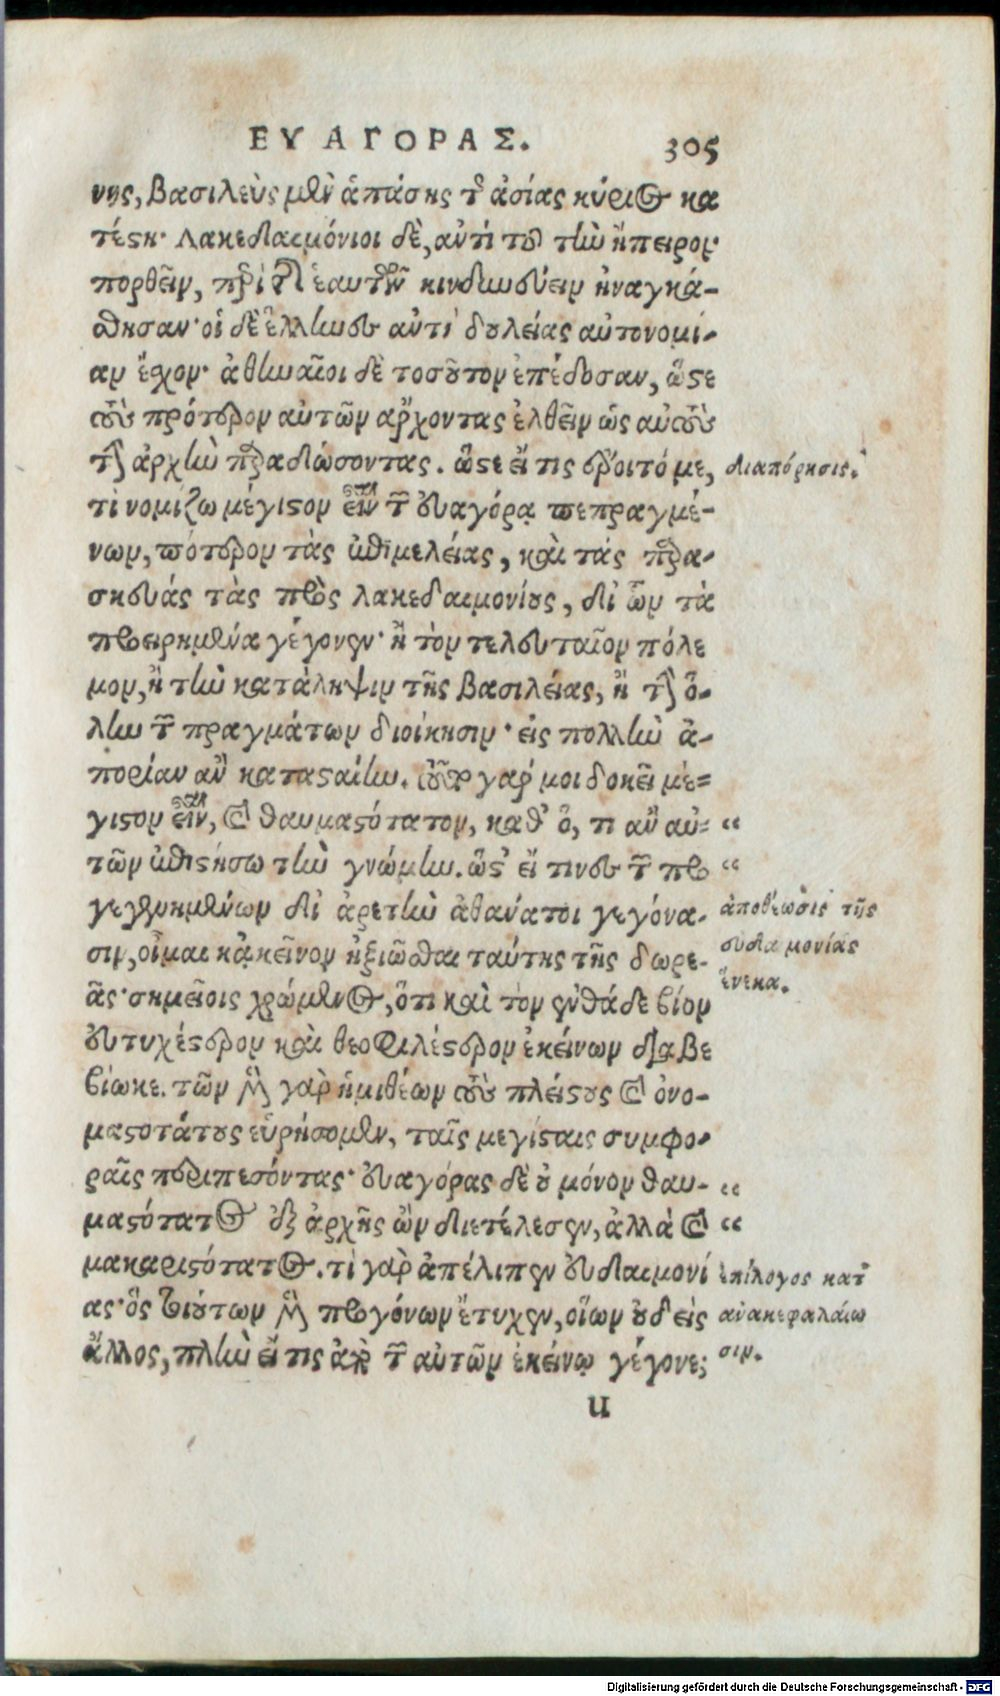 ΕΥΑΓΟΡΑΣ. 305
νης, βασιλεὺς μὲν ἁπάσης τῆς ἀσίας κύριος κα
τέστη· Λακεδαιμόνιοι δὲ, αὐτὶ τοῦ τὴν ἤπειρον
πορθεῖν, περὶ τῆς ἑαυτῶν κινδυνεύειν ἠναγκά-
σθησαν· οἱ δὲ ἕλληνες ἀντὶ δουλείας αὐτονομί-
αν ἔσχον· ἀθηναῖοι δὲ τοσοῦτον ἐπέδοσαν, ὥστε
τοὺς πρότερον αὐτῶν ἄρχοντας ἐλθεῖν ὡς αὐτοὺς
τὴν ἀρχὴν παραδώσοντας. ὥστε εἴ τις ἔροιτό με,
διαπόρησις.
τὶ νομίζω μέγιστον εἶναι τῶν εὐαγόρᾳ πεπραγμέ-
νων, πότερον τὰς ἐπιμελείας, καὶ τὰς παρα-
σκευάς τὰς πρὸς λακεδαιμονίους, δι' ὧν τὰ
προειρημένα γέγονεν· ἢ τὸν τελευταῖον πόλε
μον, ἢ τὴν κατάληψιν τῆς βασιλείας, ἢ τὴν ὅ-
λην τῶν πραγμάτων διοίκησιν· εἰς πολλὴν ἀ-
πορίαν ἂν κατασταίην. ἀεὶ γάρ μοι δοκεῖ μέ-
γιστον εἶναι, καὶ θαυμαστότατον, καθ' ὅ, τι ἂν αὐ- “
τῶν ἐπιστήσω τὴν γνώμην. ὥστ' εἴ τινες τῶν προ “
γεγενημένων δι' ἀρετὴν ἀθάνατοι γεγόνα-
ἀποθέωσις τῆς
σιν, οἶμαι κἀκεῖνον ἠξιῶσθαι ταύτης τῆς δωρε-
εὐδαιμονίας
ᾶς· σημείοις χρώμενος, ὅτι καὶ τὸν ἐνθάδε βίον
ἕνεκα.
εὐτυχέστερον καὶ θεοφιλέστερον ἐκείνων διαβε
βίωκε. τῶν μὲν γὰρ ἡμιθέων τοὺς πλείστους καὶ ὀνο-
μαστοτάτους εὑρήσομεν, ταῖς μεγίσταις συμφο-
ραῖς περιπεσόντας· εὐαγόρας δὲ οὐ μόνον θαυ- “
μαστότατος ἐξ ἀρχῆς ὢν διετέλεσεν, ἀλλὰ καὶ “
μακαριστότατος. τί γὰρ ἀπέλιπεν εὐδαιμονί
ἐπίλογος κατ'
ας· ὃς τοιούτων μὲν προγόνων ἔτυχεν, οἵων οὐδεὶς
ἀνακεφαλαίω
ἄλλος, πλὴν εἴ τις ἀπὸ τῶν αὐτῶν ἐκείνῳ γέγονε;
σιν.
u
Digitalisierung gefördert durch die Deutsche Forschungsgemeinschaft - DFG